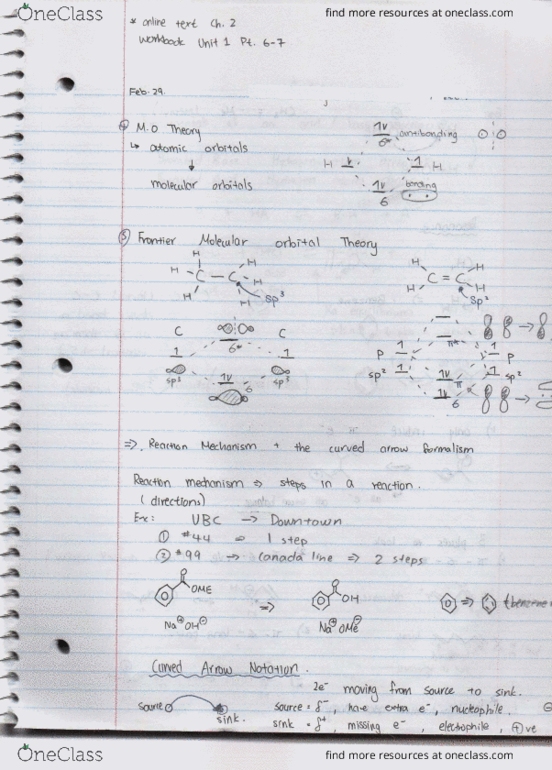 OneClass
find more resources at oneclass.com
* online text Ch. 2
workbook Unit 1 Pt. 6-7
Feb. 29.
④ M.O Theory
↳ atomic orbitals
↓
molecular orbitals
1v
6* antibonding
H 1 1 H
1v bonding
6
⑤ Frontier Molecular orbital Theory
H H
H - C - C - H
H H sp³
H H
C = C
H H
sp²
C C
6*
1 1
sp³ sp³
1v 6
π*
P 1 1 P
sp² 1 1 sp²
1v π
1v
6
⇒ Reaction Mechanism + the curved arrow formalism
Reaction mechanism ⇒ steps in a reaction.
(directions)
Ex: UBC → Downtown
① #44 ⇒ 1 step
② #99 → Canada line ⇒ 2 steps
O O
OMe ⇒ OH ⇒ (benzene
Na⊕OH⊖ Na⊕OMe⊖
Curved Arrow Notation.
2e⁻ moving from source to sink.
source sink.
source = δ⁻, have extra e⁻, nucleophile. ⊖
sink = δ⁺, missing e⁻, electrophile, ⊕ve
OneClass
find more resources at oneclass.com